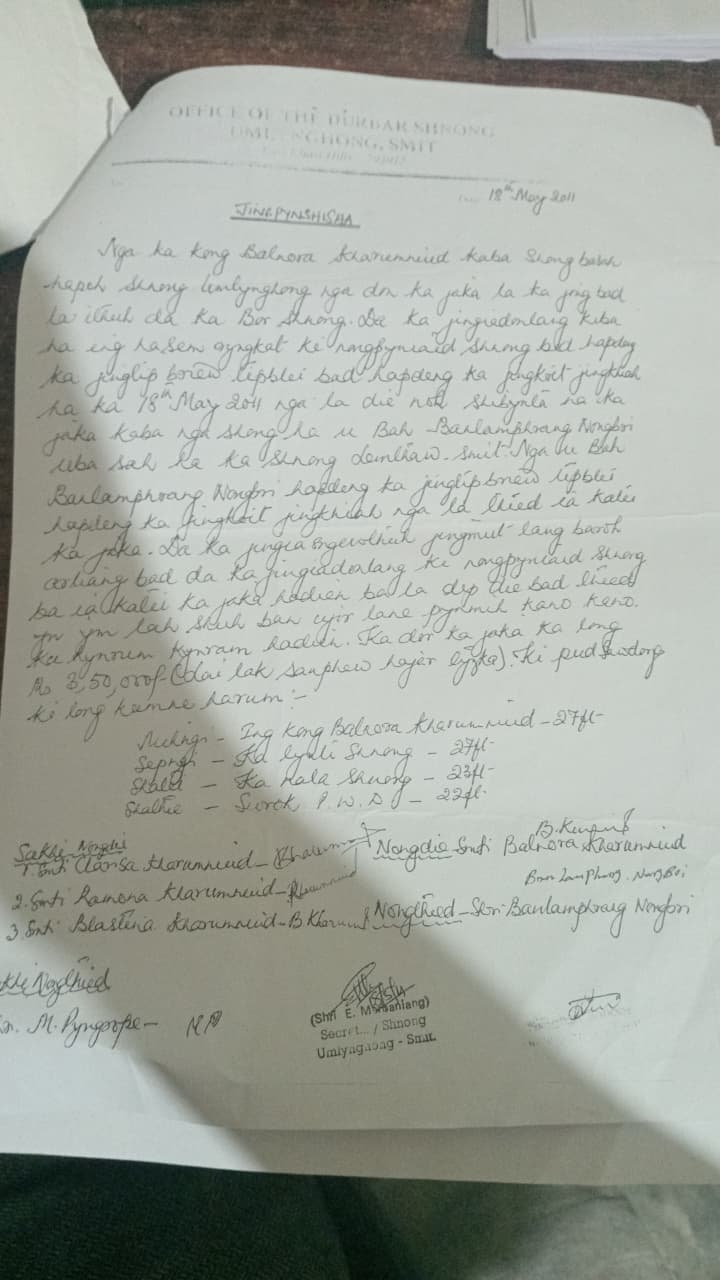 OFFICE OF THE DURBAR SHNONG
UMLYNGHONG, SMIT
18th May 2011
JINGPYNSHISHA
Nga ka Kong Balnora Kharumnuid kaba Shong bah
hapoh Shnong Umlynghong nga don ka jaka la ka jong bad
la ithuh da ka Bor Shnong. Da ka jingiadonlang kiba
ha ing hasem ki nongpyniaid Shnong bad hapdeng
ka jinglip briew lipblei bad hapdeng ka jingkoit jingkhiah
ha ka 18th May 2011 nga la die noh Shibynta na ka
jaka kaba nga Shong ha u Bah Banlamphrang Nongbri
uba sah ha ka Shnong Domthaw. Smit. Nga u Bah
Banlamphrang Nongbri hapdeng ka jinglip briew lipblei
hapdeng ka jingkoit jingkhiah nga la thied ia katei
ka jaka. Da ka jingia jingmut lang baroh
arliang bad da ka jingiadonlang ki nongpyniaid Shnong
ba ia katei ka jaka hadien ba la dep die bad thied
ym lah shuh ban lane pynmih kano kano
ka kynnum kynram hadien. Ka dor ka jaka ka long
Rs 3,50,000/- (lai lak sanphew hajar). Ki pud
ki long kumne harum:-
Mihngi - Ing Kong Balnora Kharumnuid - 27ft
Sepngi - Ka lynti Shnong - 27ft
Ka nala Shnong - 23ft
Surok P.W.D - 22ft
Sakhi Nongdie
1. Smti Clarisa Kharumnuid - Nongdie Smti Balnora Kharumnuid
2. Smti Ramona Kharumnuid -
3. Smti Blastina Kharumnuid - B Kharum Nongthied - Shri Banlamphrang Nongbri
Nongthied
M. Pyngrope -
(Shri E. M
Shnong
Umlynghong - Smit